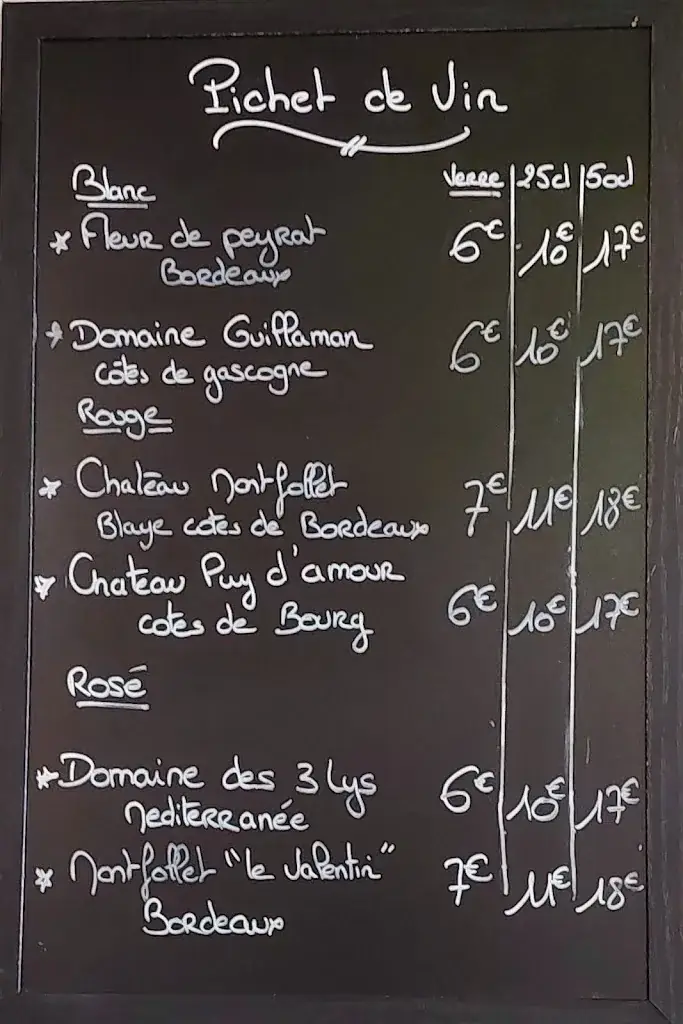 Pichet de Vin
Blanc Verre 25cl 50cl
* Fleur de peyrat 6€ 10€ 17€
Bordeaux
* Domaine Guillaman 6€ 10€ 17€
côtes de gascogne
Rouge
* Château Montfollet 7€ 11€ 18€
Blaye cotes de Bordeaux
* Chateau Puy d'amour 6€ 10€ 17€
cotes de Bourg
Rosé
* Domaine des 3 lys 6€ 10€ 17€
Mediterranée
* Montfollet "le Valentin" 7€ 11€ 18€
Bordeaux